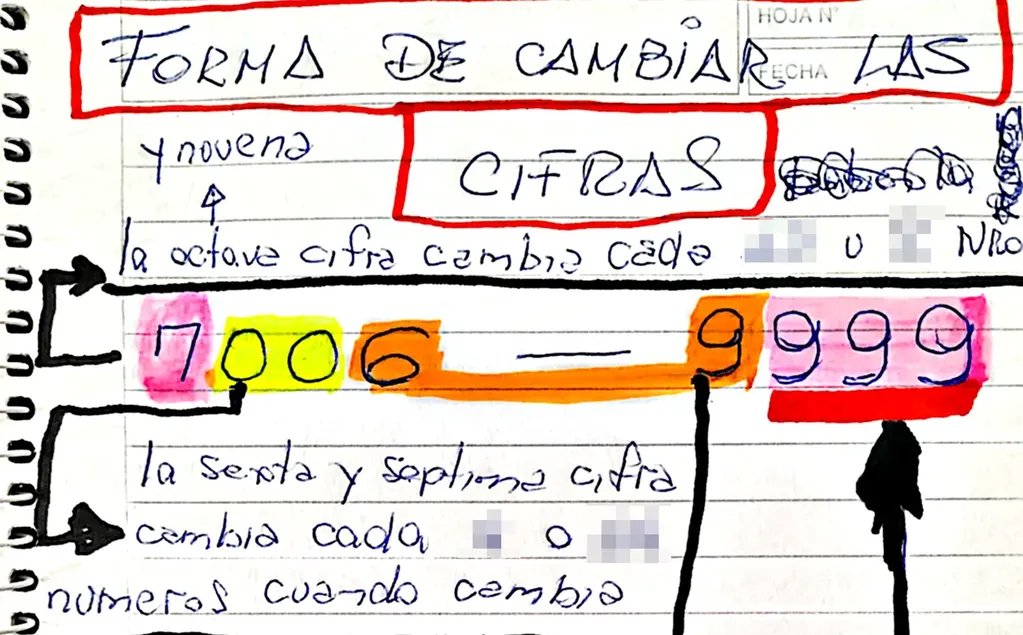 HOJA N°
FORMA DE CAMBIAR LAS
FECHA
y novena
CIFRAS
la octava cifra cambia cada u NRO
7006 — 9999
la sexta y septima cifra
cambia cada o
numeros cuando cambia